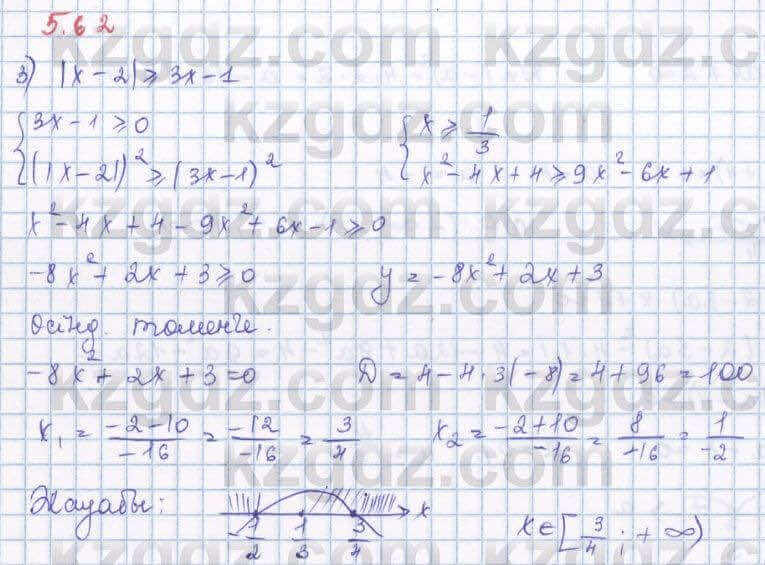 5.62
3) |x-2| ≥ 3x-1
{ 3x-1 ≥ 0 { x ≥ 1/3
{ (|x-2|)² ≥ (3x-1)² { x²-4x+4 ≥ 9x²-6x+1
x²-4x+4-9x²+6x-1 ≥ 0
-8x²+2x+3 ≥ 0 y = -8x²+2x+3
төменге.
-8x²+2x+3=0 D = 4-4·3(-8) = 4+96 = 100
x₁ = (-2-10)/(-16) = (-12)/(-16) = 3/4 x₂ = (-2+10)/(-16) = 8/(-16) = 1/(-2)
Жауабы: -1/2 1/3 3/4 x x∈[3/4; +∞)
kzgdz.com